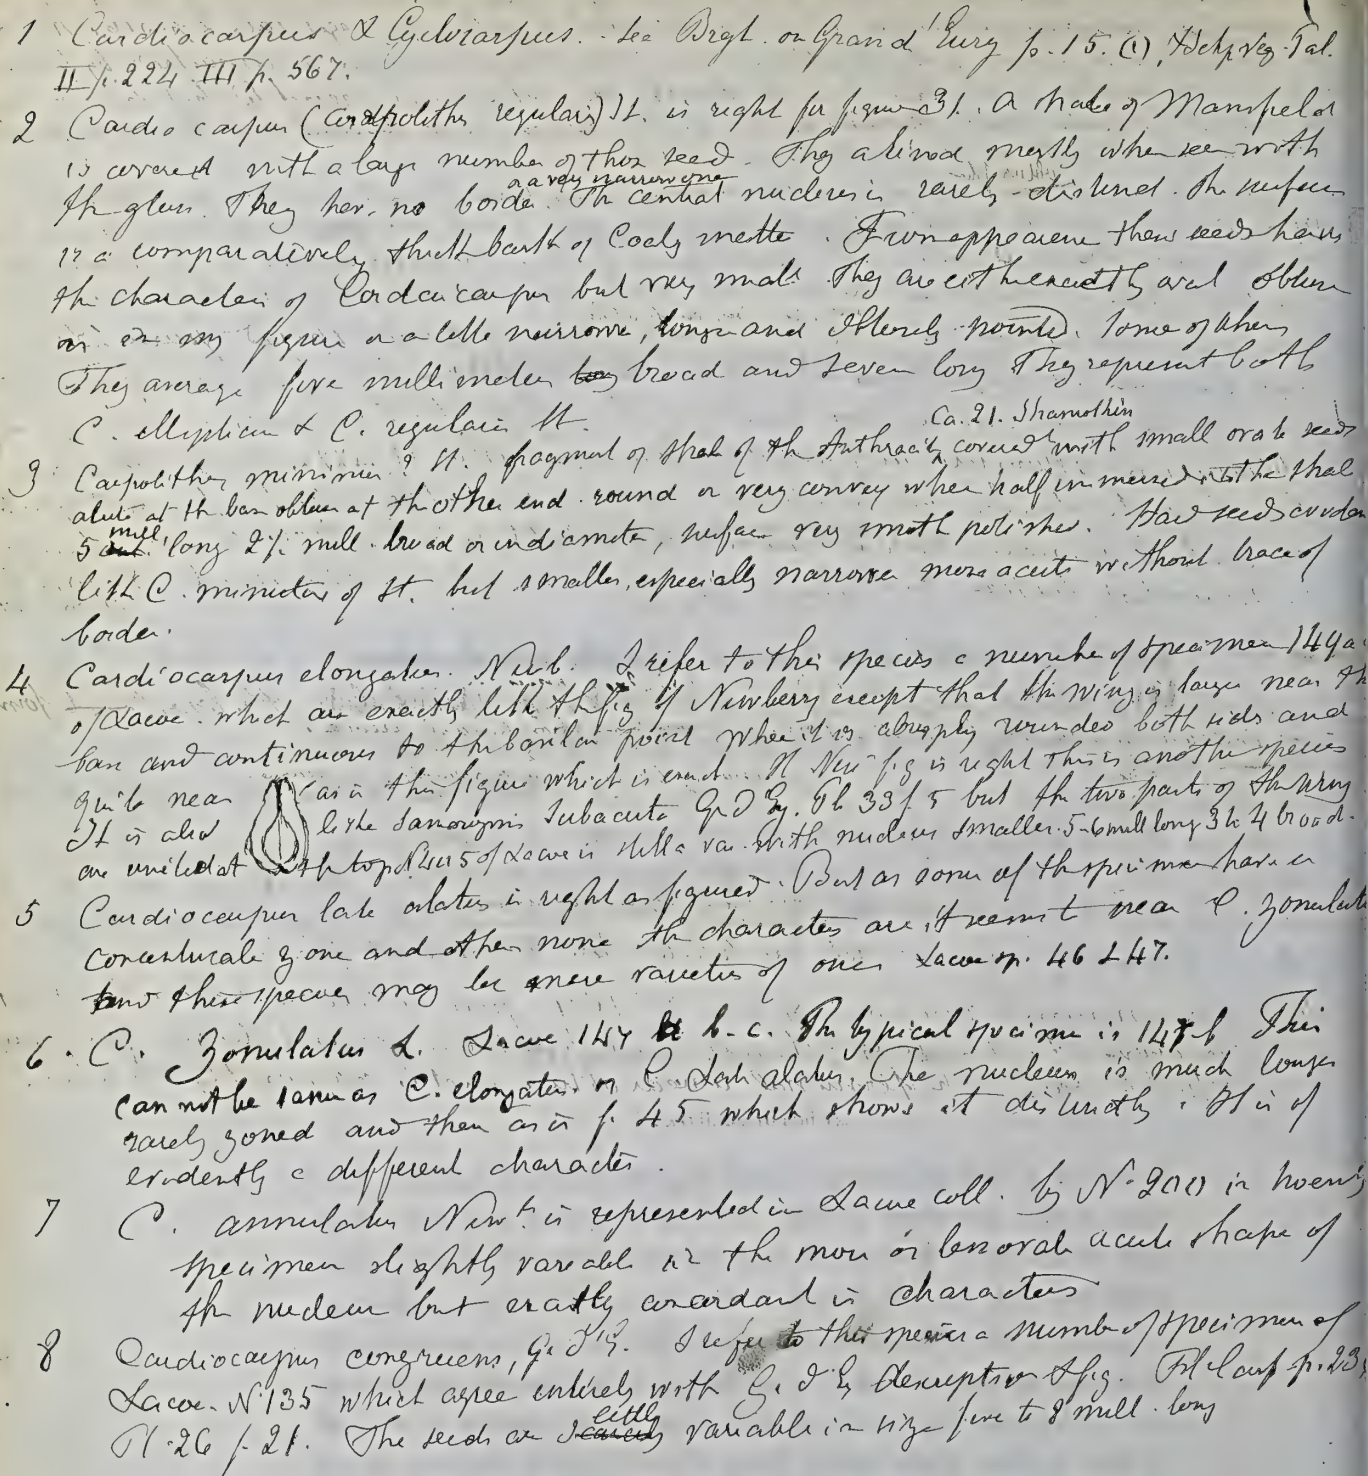 1 Cardiocarpus & Cyclocarpus. See Brgt. on Grand' Eury p. 15. (1), Veg. Pal.
II p. 224 III p. 567.
2 Cardiocarpus (Carpolithes regularis) St. is right for figure 31. A shale of Mansfield
is covered with a large number of those seed. They alined mostly when seen with
or a very narrow one
the glass. They have no border. The central nucleus is rarely distinct. The surface
is a comparatively thick bark of Coaly matter. From appearence these seeds have
the characters of Cordaicarpus but very small. They are either exactly oval obtuse
as in my figure or a little narrower, longer and obtusely pointed. Some of them
They average five millimeters long broad and seven long They represent both
C. ellipticus & C. regularis St.
Ca. 21. Shamokin
3 Carpolithes minimus? St. fragment of shale of the Anthracite, covered with small ovate seeds
acute at the base obtuse at the other end. round or very convex when half immersed into the shale
mill.
5 long 2½ mill. broad or in diameter, surface very smoth polished. Hard seeds
like C. of St. but smaller, especially narrower more acute without trace of
border.
4 Cardiocarpus elongatus. Newb. I refer to this species a number of specimen 149a
of Lacoe. which are exactly like the fig of Newberry except that the wing is larger near the
base and continuous to the basilar point when it is abruptly rounded both sids and
quite near as in this figure which is exact. If New' fig is right This is another species
It is also like Samaropsis Subacuta G. d'Ey. Pl 33 f 5 but the two parts of the wing
are united at the top. of Lacoe is still a var. with nucleus smaller. 5-6 mill long 3 to 4 broad.
5 Cardiocarpus late alatus is right as figured. But as some of the specimen have a
zone and other none the characters are, it seems to near C. zonulatus
and these species may be mere varieties of one. Lacoe sp. 46 & 47.
6. C. Zonulatus L. Lacoe 147 b-c. The typical specimen is 147 b This
can not be same as C. elongatus or C. Late alatus. The nucleus is much longer
rarely zoned and then as in f. 45 which shows it distinctly. It is of
evidently a different character.
7 C. annulatus Newb. is represented in Lacoe coll. by No 200 in
specimen slightly variable in the more or less ovate acute shape of
the nucleus but exactly concordant in characters
8 Cardiocarpus congruens, G. d'E. I refer to this species a number of specimen of
Lacoe. No 135 which agree entirely with G. d'Ey description & fig. Fl Carb p. 23
little
Pl. 26 f. 21. The seeds are scarcely variable in size five to 8 mill. long